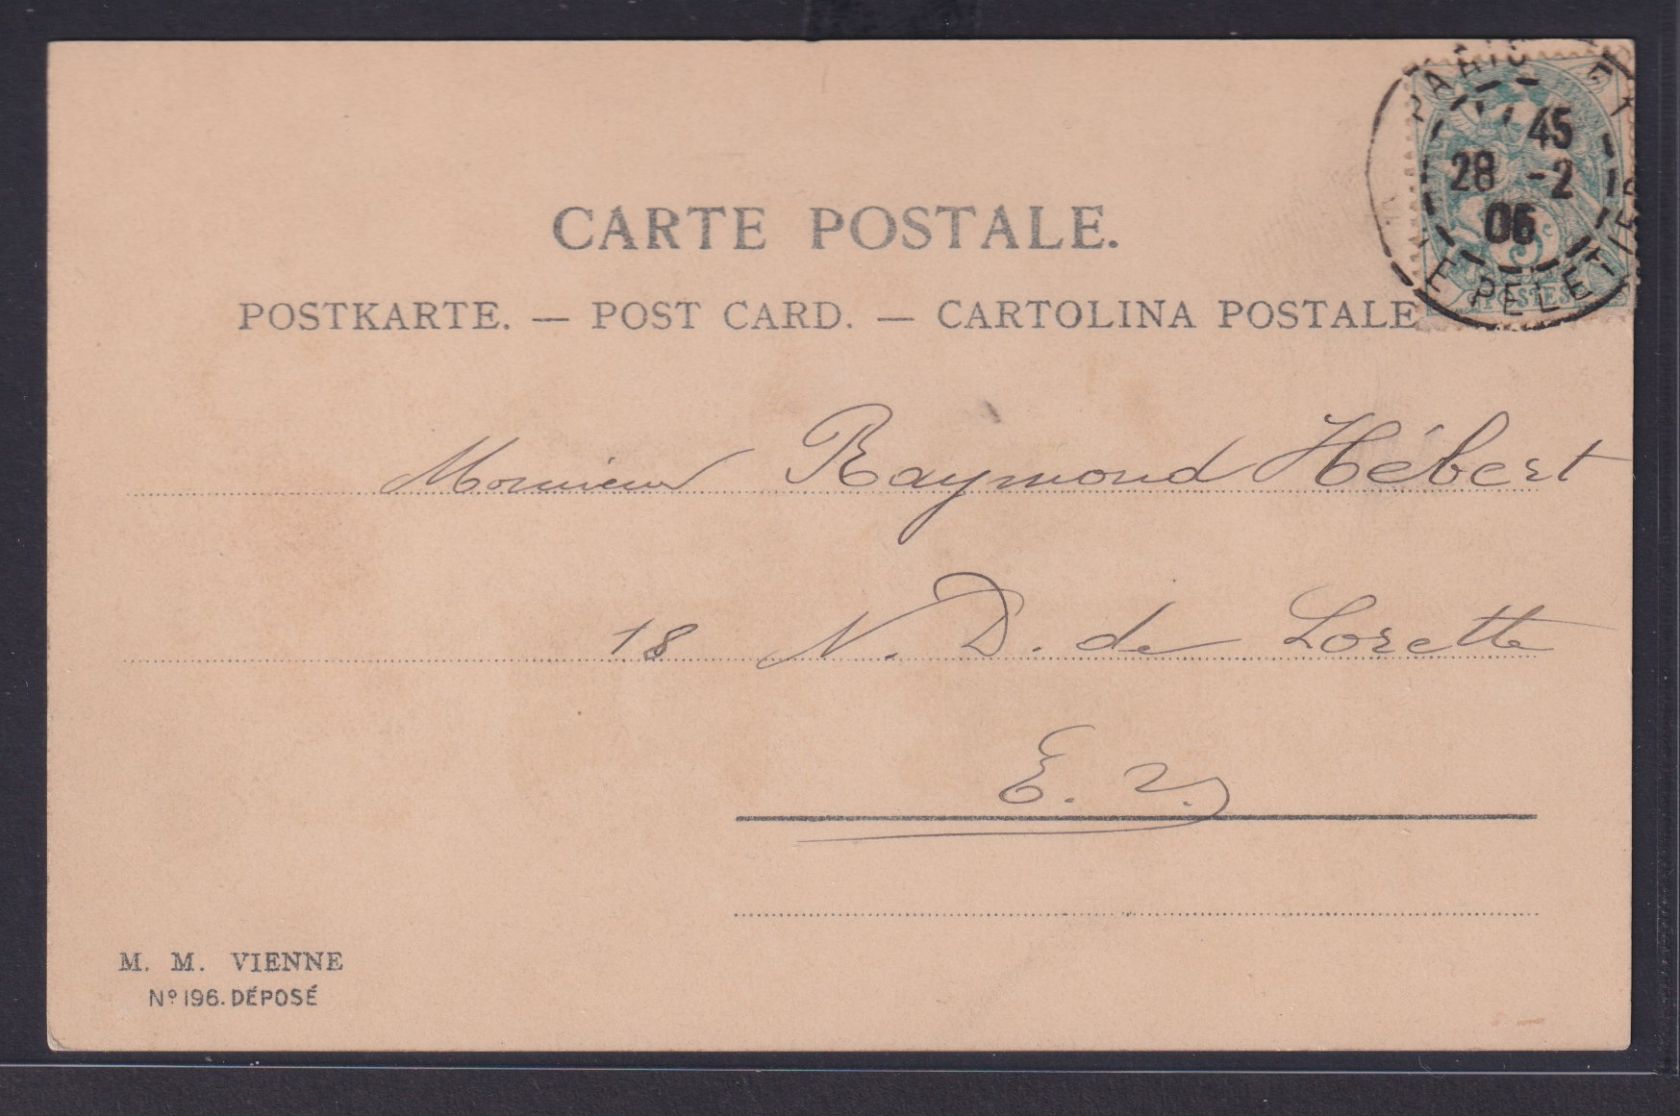 CARTE POSTALE.
POSTKARTE. — POST CARD. — CARTOLINA POSTALE
PARIS
45
28 -2
06
LE PELETIER
5c
POSTES
Monsieur Raymond Hébert
18 N. D. de Lorette
E. V.
M. M. VIENNE
Nº 196. DÉPOSÉ